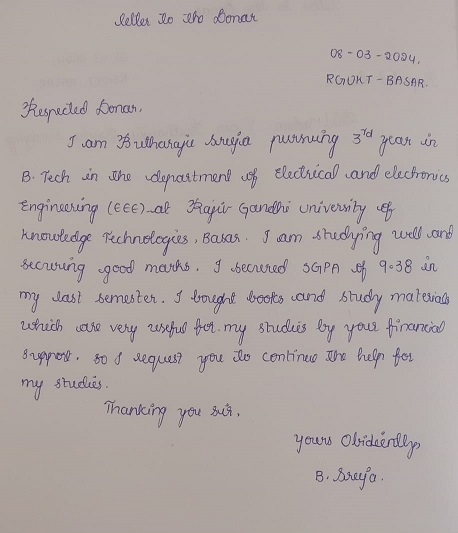 letter to the Donar
08-03-2024,
RGUKT-BASAR.
Respected Donar,
I am Butharaju Sreeja pursuing 3rd year in
B. Tech in the department of Electrical and electronics
Engineering (EEE) at Rajiv Gandhi University of
Knowledge Technologies, Basar. I am studying well and
securing good marks. I secured SGPA of 9.38 in
my last semester. I bought books and study materials
which are very useful for my studies by your financial
support. so I request you to continue the help for
my studies.
Thanking you sir,
yours Obidiently
B. Sreeja.